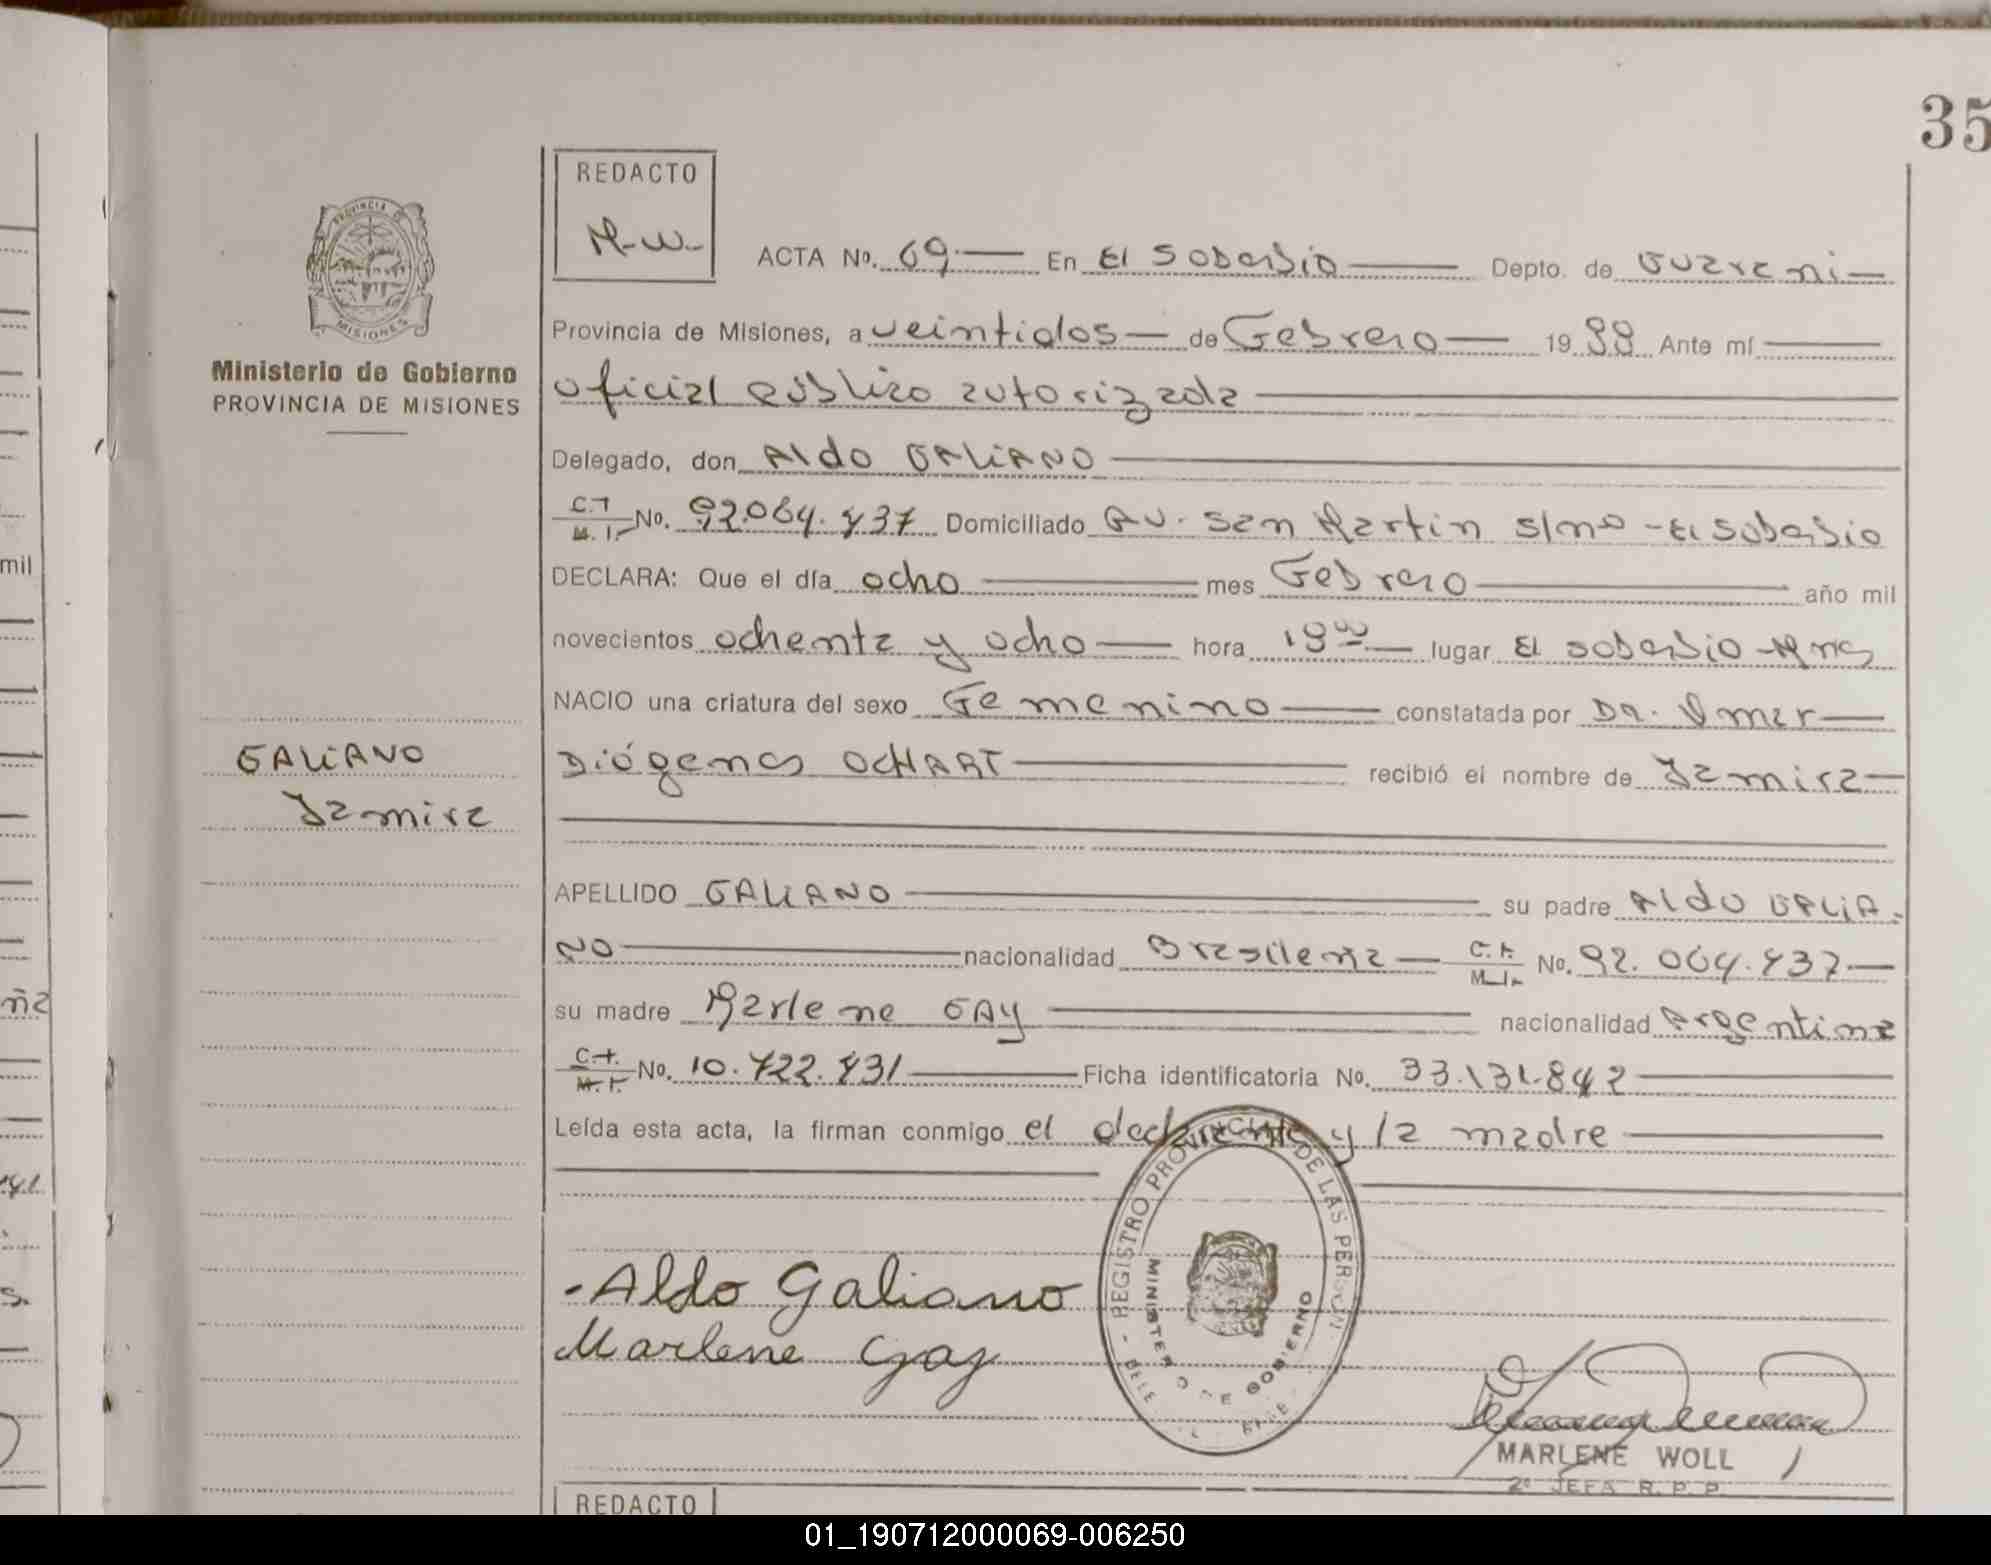 35
REDACTO
M-W-
ACTA No. 69 En El Soberbio Depto. de Guarani
Provincia de Misiones, a veintidos de Febrero 1988 Ante mí
oficial público autorizada
Delegado, don Aldo GALIANO
C.I. M. I. No. 92.064.437 Domiciliado Av. San Martin s/nº - El Soberbio
DECLARA: Que el día ocho mes Febrero año mil
novecientos ochenta y ocho hora 18 00 lugar El Soberbio - Mnes
NACIO una criatura del sexo Femenino constatada por Dr. Omar
Diógenes OCHART recibió el nombre de Yamira
APELLIDO GALIANO su padre Aldo GALIA-
NO nacionalidad Brasileña C.I. M.I. No. 92.064.437
su madre Marlene GAY nacionalidad Argentina
C.I. M.I. No. 10.422.431 Ficha identificatoria No. 33.131.842
Leída esta acta, la firman conmigo el declarante y la madre
Aldo Galiano
Marlene Gay
REGISTRO PROVINCIAL DE LAS PERSON
MINISTERIO DE GOBIERNO
MARLENE WOLL
2ª JEFA R. P. P.
REDACTO
PROVINCIA DE
MISIONES
Ministerio de Gobierno
PROVINCIA DE MISIONES
GALIANO
Yamira
mil
ña
01_190712000069-006250